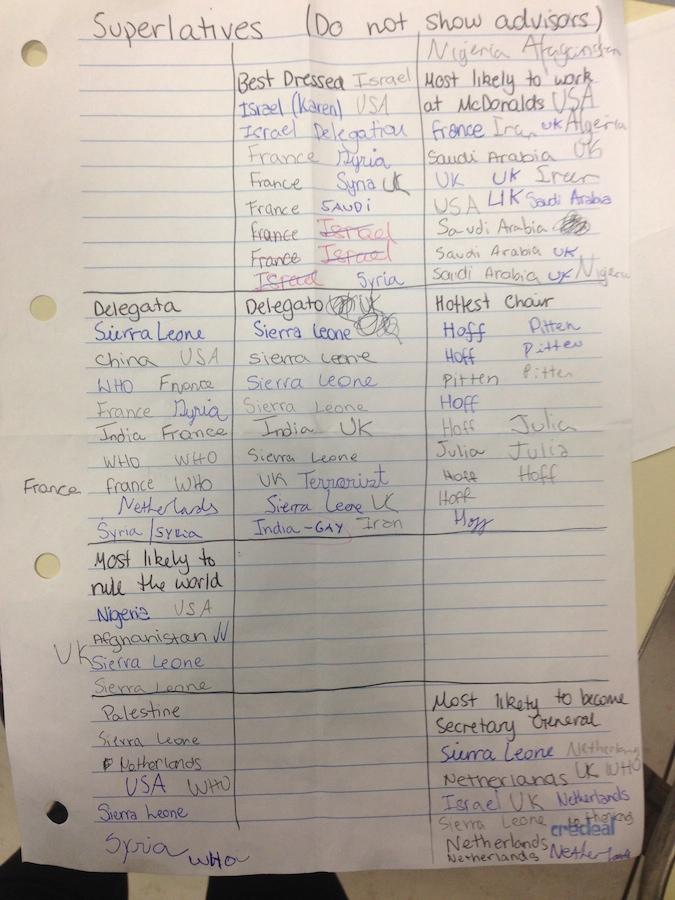 Superlatives (Do not show advisors)
Nigeria
Best Dressed Israel
Israel (Karen) USA
Israel Delegation
France Syria
France Syria UK
France SAUDI
France Israel
France Israel
Israel Syria
Most likely to work
at McDonalds USA
France Iran UK Algeria
Saudi Arabia UK
UK UK
USA UK Saudi Arabia
Saudi Arabia
Saudi Arabia UK
Saudi Arabia UK Nigeria
Delegata
Sierra Leone
China USA
WHO France
France Syria
India France
WHO WHO
France France WHO
Netherlands
Syria/Syria
Delegato UK
Sierra Leone
Sierra Leone
Sierra Leone
Sierra Leone
India UK
Sierra Leone
UK Terrorist
Sierra Leone UK
India - GAY Iran
Hottest Chair
Hoff Pitten
Hoff Pitten
Pitten Pitten
Hoff
Hoff Julia
Julia Julia
Hoff Hoff
Hoff
Hoff
Most likely to
rule the world
Nigeria USA
Afghanistan
UK Sierra Leone
Sierra Leone
Palestine
Sierra Leone
Netherlands
USA WHO
Sierra Leone
Syria WHO
Most likely to become
Secretary General
Sierra Leone Netherlands
Netherlands UK WHO
Israel UK Netherlands
Sierra Leone
Netherlands
Netherlands Netherlands